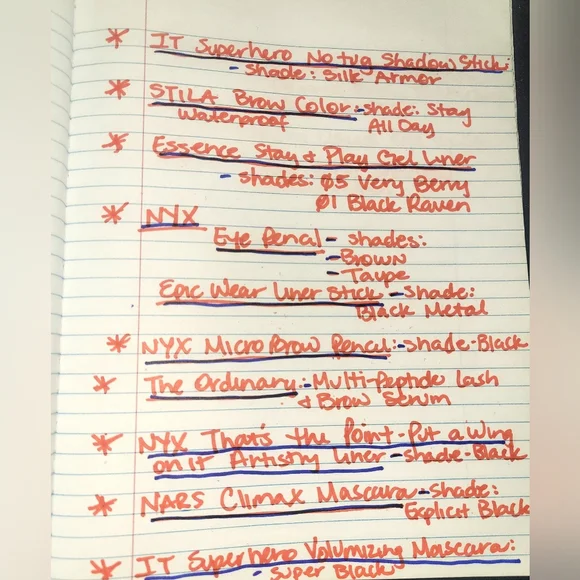 * IT Superhero No tug Shadow Stick:
- Shade: Silk Armor
* STILA Brow Color:-shade: Stay
Waterproof All Day
* Essence Stay & Play Gel Liner
- shades: Ø5 Very Berry
Ø1 Black Raven
* NYX
Eye Pencil - shades:
- Brown
- Taupe
Epic Wear Liner Stick - Shade:
Black Metal
* NYX Micro Brow Pencil:-shade-Black
* The Ordinary:-Multi-Peptide Lash
& Brow Serum
* NYX That's the Point-Put a Wing
on it Artistry Liner -shade-Black
* NARS Climax Mascara-Shade:
Explicit Black
* IT Superhero Volumizing Mascara:
- Super Black